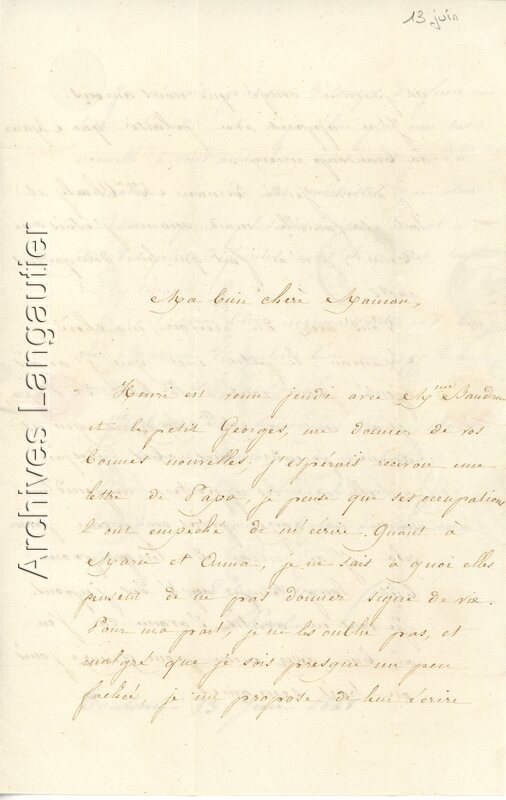 13 juin
Ma bien chère Maman,
Henri est venu jeudi avec Mme
et le petit Georges, me donner de vos
bonnes nouvelles, j'espérais recevoir une
lettre de Papa, je pense que ses occupations
l'ont empêché de m'écrire. Quant à
Marie et Emma, je ne sais à quoi elles
pensent de ne pas donner signe de vie.
Pour ma part, je ne les oublie pas, et
malgré que je sois presque un peu
fachée, je me propose de leur écrire
Archives Langautier